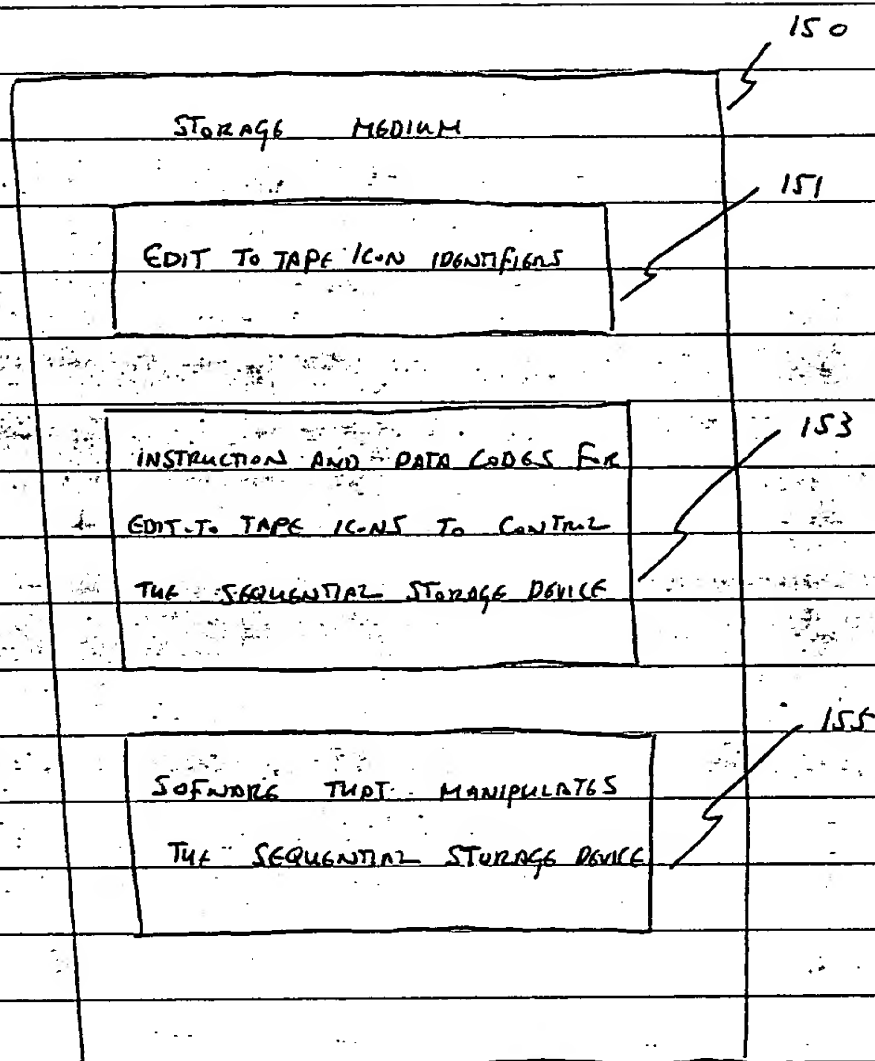 150
STORAGE MEDIUM
151
EDIT TO TAPE ICON IDENTIFIERS
153
INSTRUCTION AND DATA CODES FOR
EDIT-TO TAPE ICONS TO CONTROL
THE SEQUENTIAL STORAGE DEVICE
155
SOFTWARE THAT MANIPULATES
THE SEQUENTIAL STORAGE DEVICE